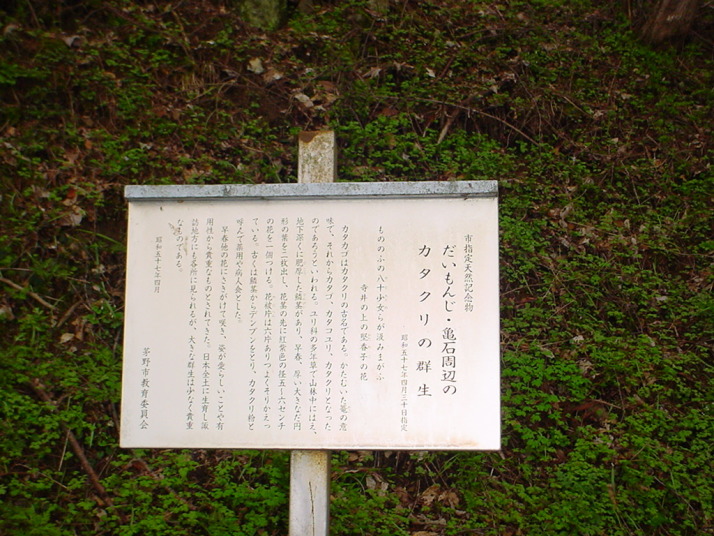 市指定天然記念物
だいもんじ・亀石周辺の
カタクリの群生
昭和五十七年四月三十日指定
もののふの八十少女らが汲みまがふ
寺井の上の堅香子の花
カタカゴはカタクリの古名である。かたむいた籠の意
味で、それからカタゴ、カタコユリ、カタクリとなった
のであろうといわれる。ユリ科の多年草で山林中にはえ、
地下深くに肥厚した鱗茎があり、早春、厚い大きなだ円
形の葉を二枚出し、花茎の先に紅紫色の径五〜六センチ
の花を一個つける。花被片は六片ありつよくそりかえっ
ている。古くは鱗茎からデンプンをとり、カタクリ粉と
呼んで薬用や病人食とした。
早春他の花にさきがけて咲き、姿が愛らしいことや有
用性から貴重なものとされてきた。日本全土に生育し諏
訪地方にも各所に見られるが、大きな群生は少なく貴重
なものである。
昭和五十七年四月
茅野市教育委員会